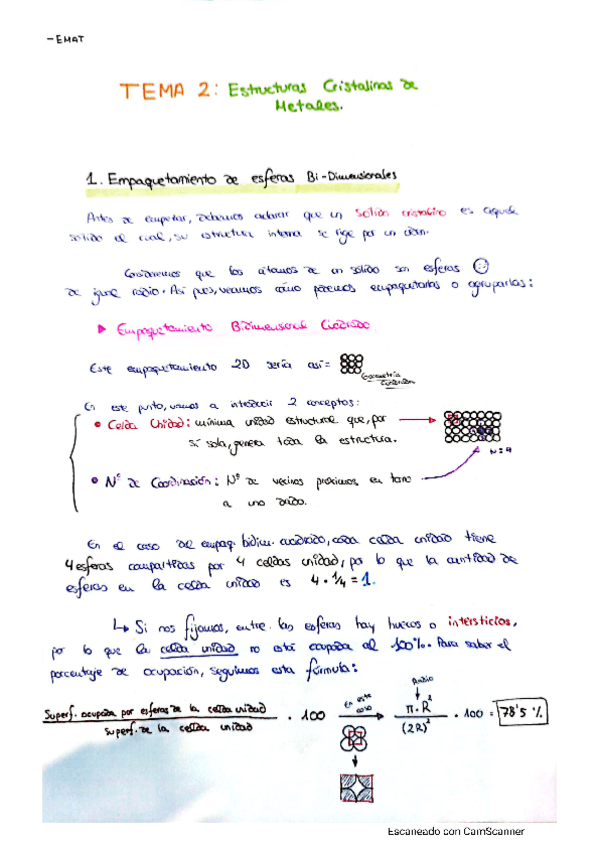 - EMAT
TEMA 2: Estructuras Cristalinas de
Metales.
1. Empaquetamiento de esferas Bi-Dimensionales
Antes de empezar, debemos aclarar que un solido cristalino es aquel
solido el cual, su estructura interna se rige por un orden.
Consideremos que los átomos de un sólido son esferas
de igual radio. Así pues, veamos cómo podemos empaquetarlas o agruparlas:
Empaquetamiento Bidimensional Cuadrado
Este empaquetamiento 2D sería así=
Geometría
Cuadrada
En este punto, vamos a introducir 2 conceptos:
• Celda Unidad: mínima unidad estructural que, por
sí sola, genera toda la estructura.
N=4
• Nº de Coordinación: Nº de vecinos próximos, en torno
a uno dado.
En el caso del empaq. bidim. cuadrado, cada celda unidad tiene
4 esferas compartidas por 4 celdas unidad, por lo que la cantidad de
esferas en la celda unidad es 4 · 1/4 = 1.
↳ Si nos fijamos, entre las esferas hay huecos o intersticios,
por lo que la celda unidad no está ocupada al 100%. Para saber el
porcentaje de ocupación, seguimos esta fórmula:
Radio
Superf. ocupada por esferas de la celda unidad / Superf. de la celda unidad · 100 En este caso → π·R² / (2R)² · 100 = 78'5 %
Escaneado con CamScanner